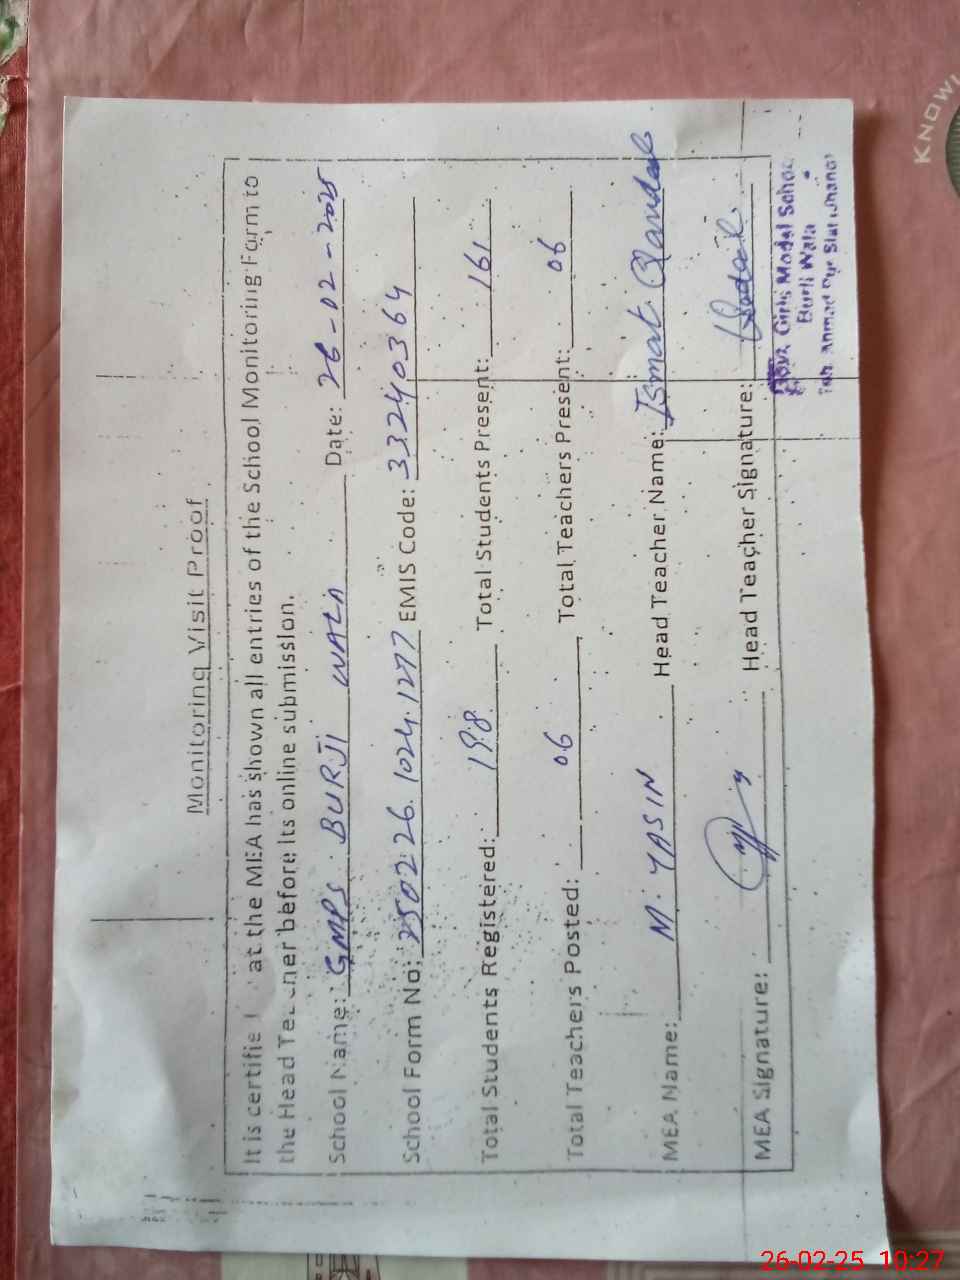 Monitoring Visit Proof
It is certifie at the MEA has shown all entries of the School Monitoring Form to
the Head before its online submission.
School Name: GMPS BURJI WALA Date: 26-02-2025
School Form No: 2502.26.1024.1277 EMIS Code: 33240364
Total Students Registered: 198 Total Students Present: 161
Total Teachers Posted: 06 Total Teachers Present: 06
MEA Name: M. YASIN Head Teacher Name: Ismat
MEA Signature: Head Teacher Signature:
Govt. Girls Model School
Burji Wala
Teh. Ahmad Pur Sial (Jhang)
KNOWL
26-02-25 10:27